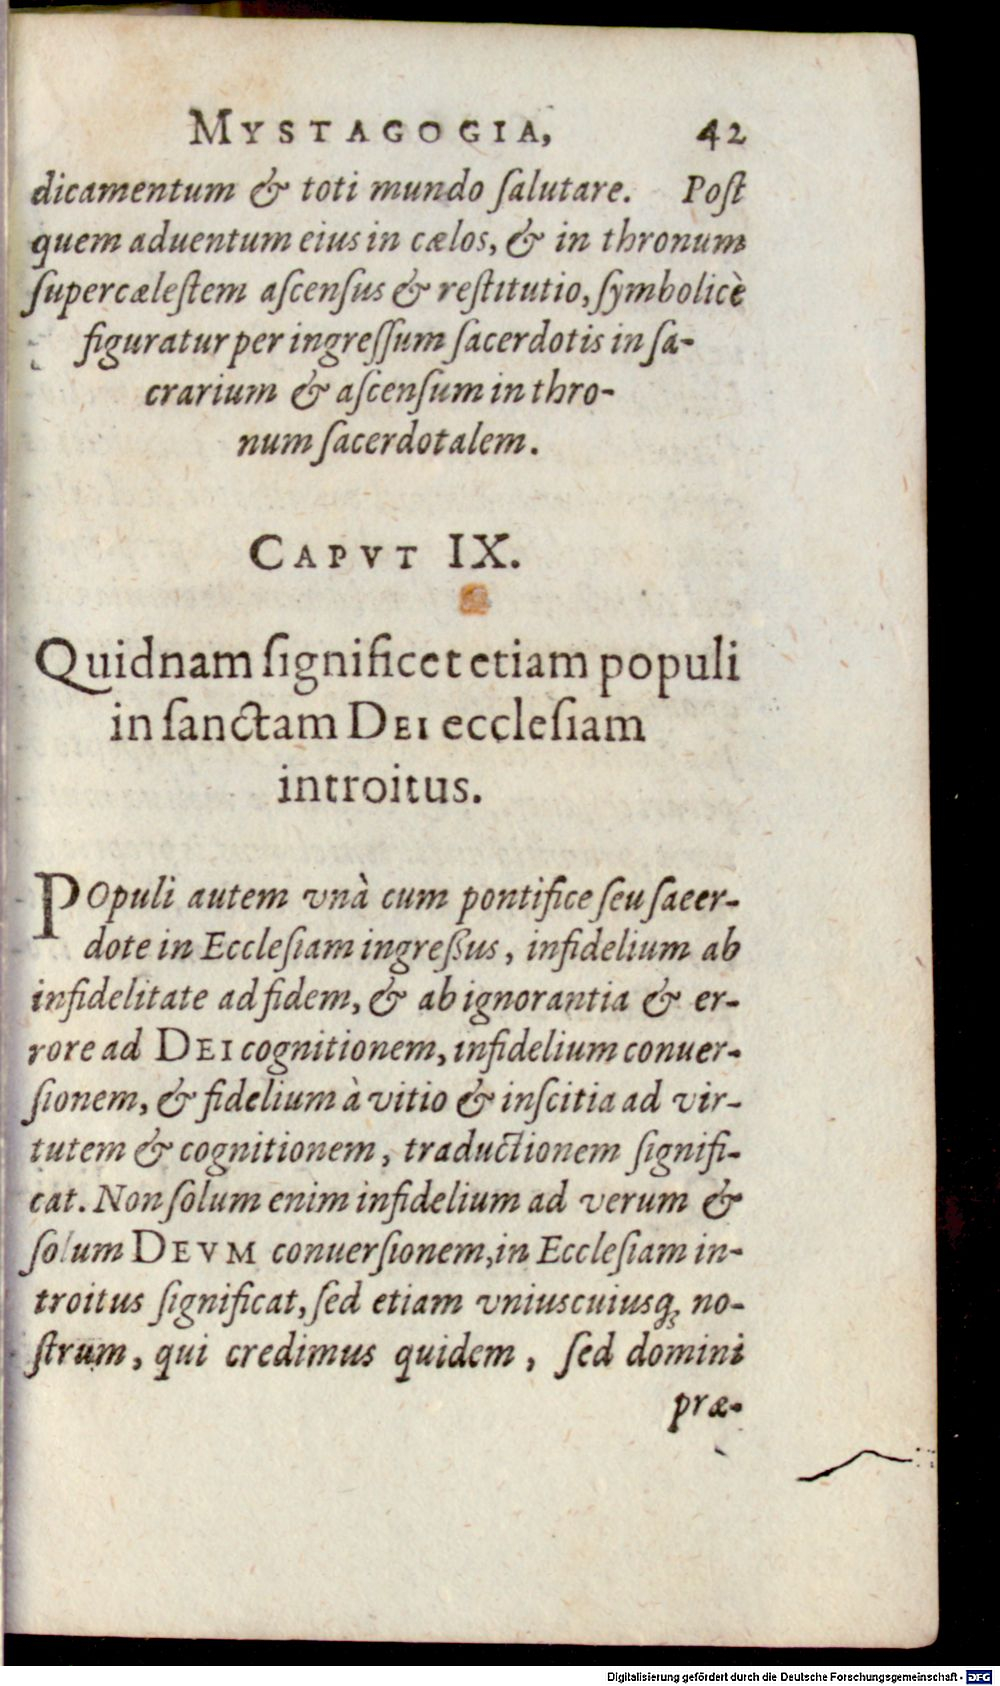 MYSTAGOGIA, 42
dicamentum & toti mundo ſalutare. Poſt
quem aduentum eius in cælos, & in thronum
ſupercæleſtem aſcenſus & reſtitutio, ſymbolicè
figuratur per ingreſſum ſacerdotis in ſa-
crarium & aſcenſum in thro-
num ſacerdotalem.
CAPVT IX.
Quidnam ſignificet etiam populi
in ſanctam DEI eccleſiam
introitus.
POpuli autem vnà cum pontifice ſeu ſaeer-
dote in Eccleſiam ingreßus, infidelium ab
infidelitate ad fidem, & ab ignorantia & er-
rore ad DEI cognitionem, infidelium conuer-
ſionem, & fidelium à vitio & inſcitia ad vir-
tutem & cognitionem, traductionem ſignifi-
cat. Non ſolum enim infidelium ad verum &
ſolum DEVM conuerſionem, in Eccleſiam in-
troitus ſignificat, ſed etiam vniuscuiusq; no-
ſtrum, qui credimus quidem, ſed domini
præ-
Digitalisierung gefördert durch die Deutsche Forschungsgemeinschaft - DFG